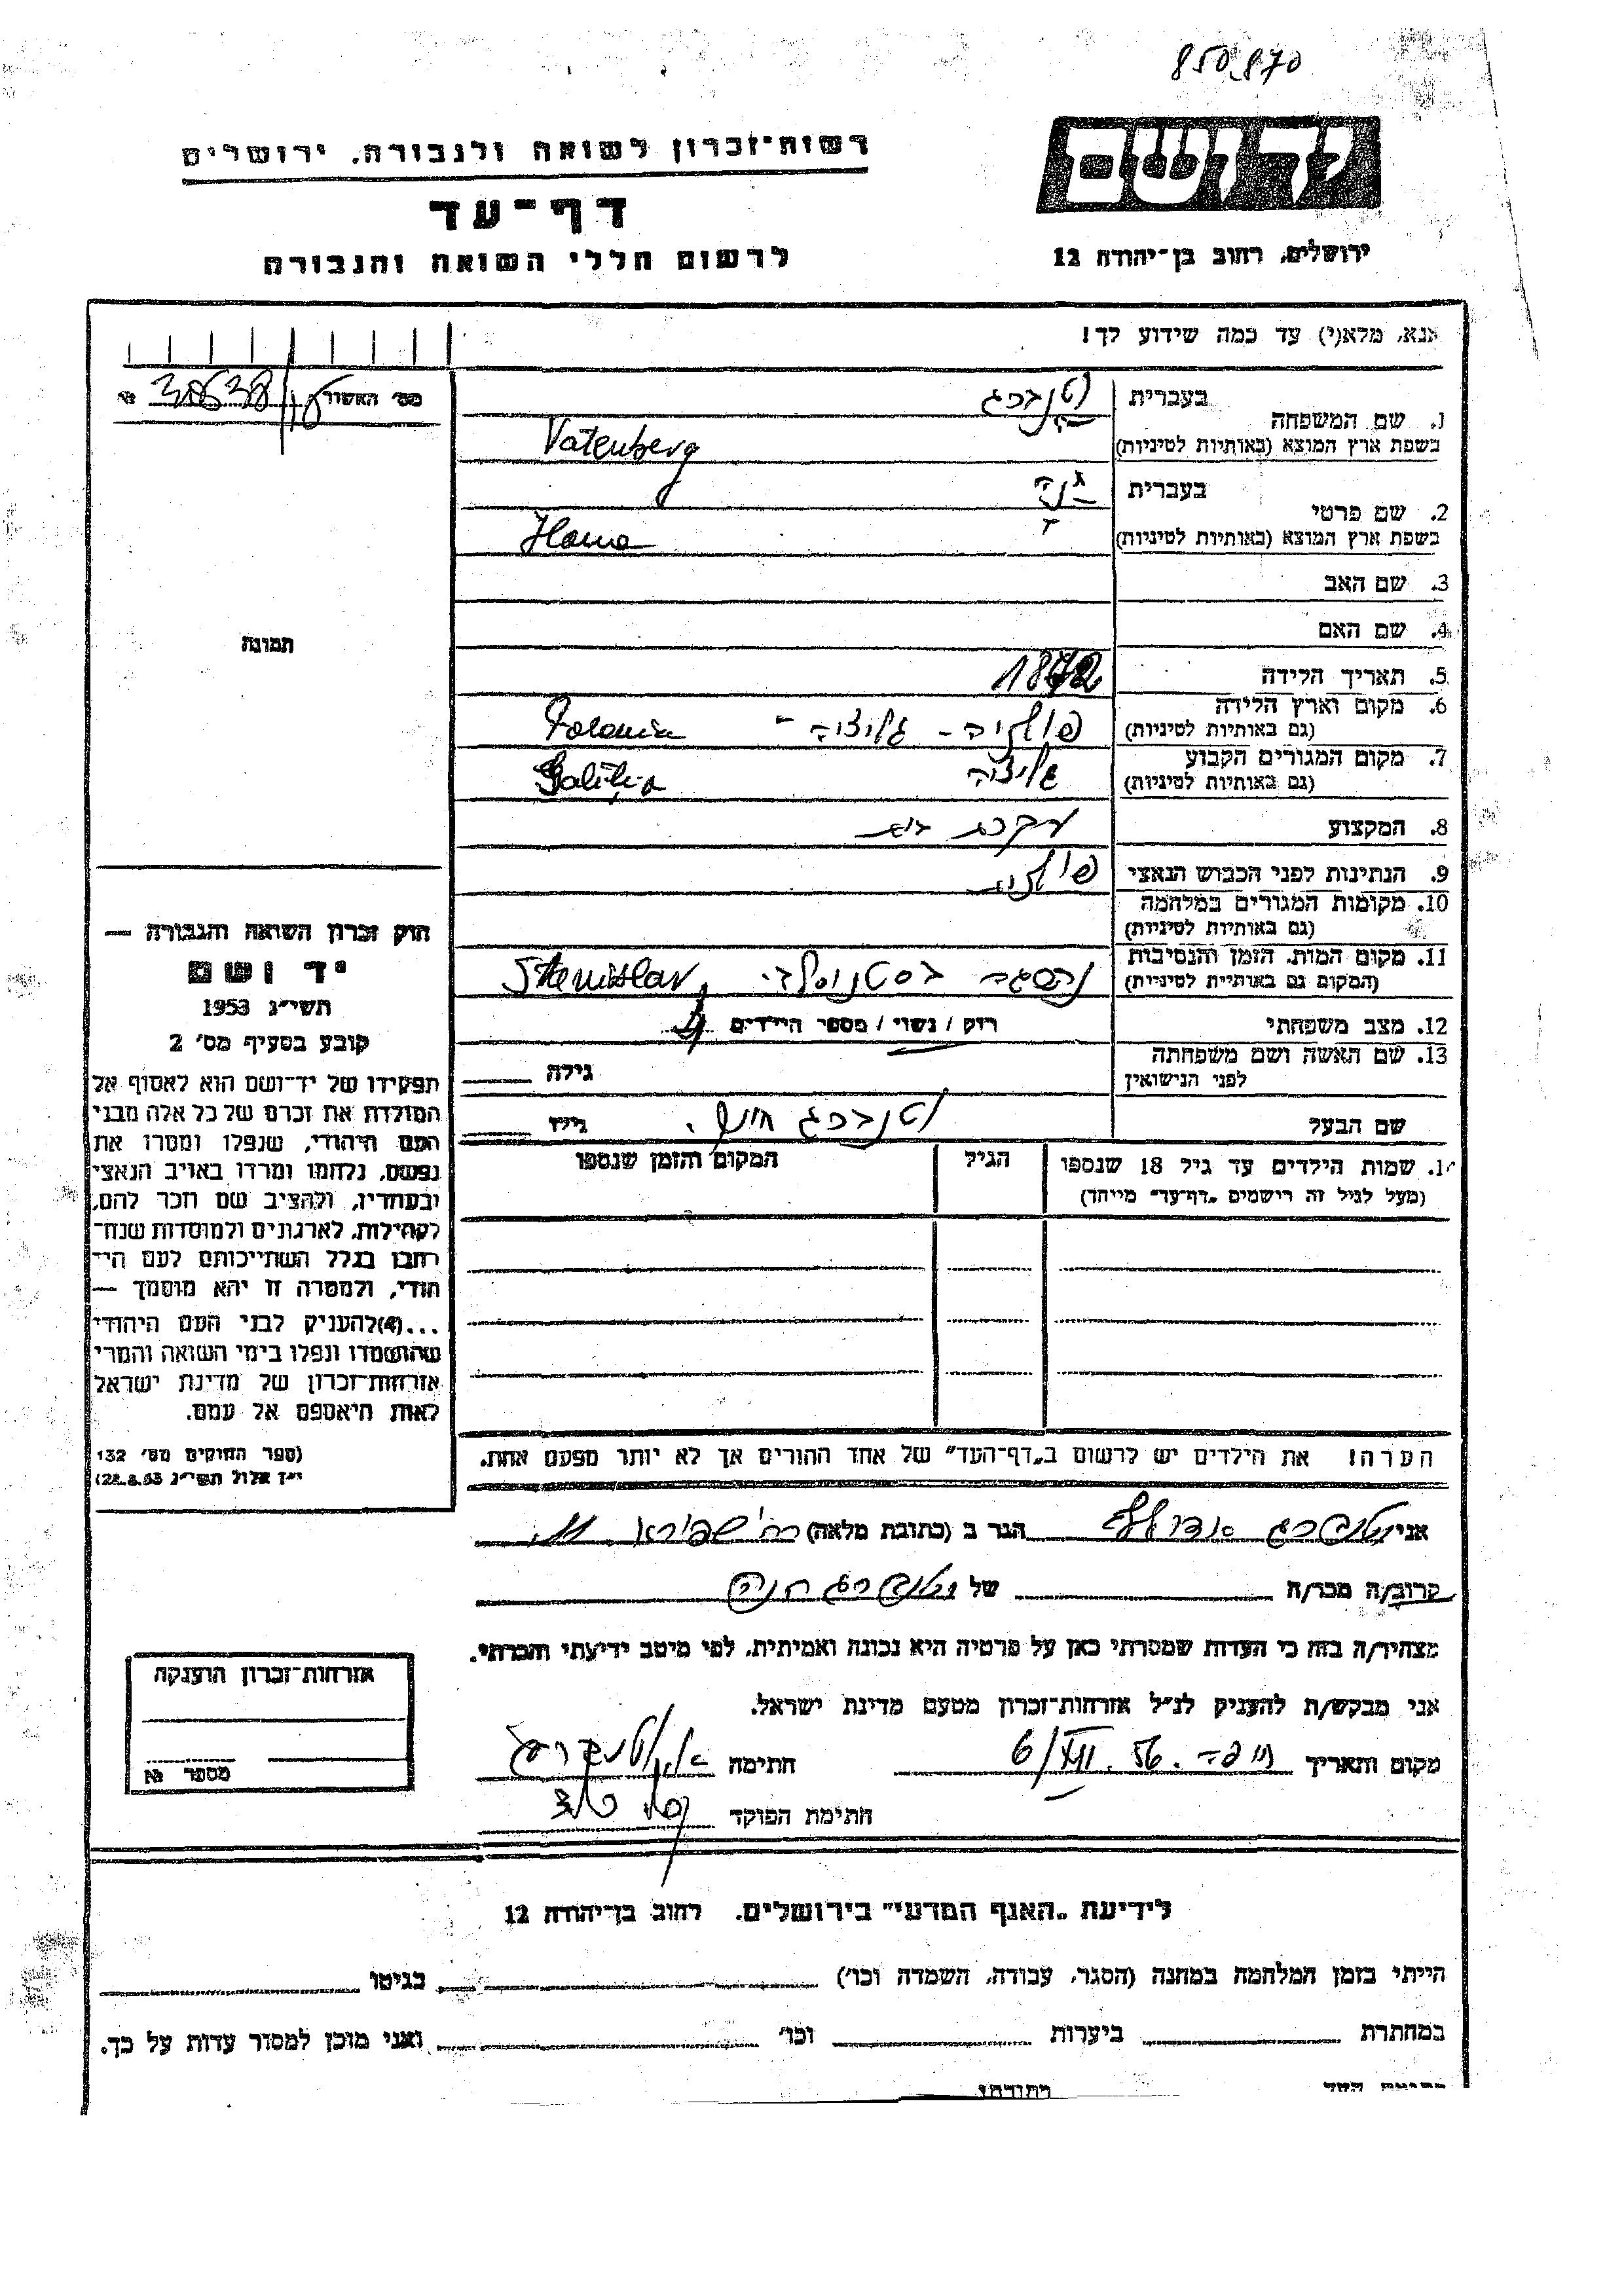 850870
רשות־זכרון לשואה ולגבורה, ירושלים
דף־עד
לרשום חללי השואה והגבורה
יד ושם
ירושלים, רחוב בן־יהודה 12
אנא, מלא(י) עד כמה שידוע לך!
מס׳ האשור
1. שם המשפחה
בעברית וטנברג
בשפת ארץ המוצא (באותיות לטיניות) Vatenberg
2. שם פרטי
בעברית חנה
בשפת ארץ המוצא (באותיות לטיניות) Hana
3. שם האב
4. שם האם
5. תאריך הלידה 1872
6. מקום וארץ הלידה
(גם באותיות לטיניות) פולניה - גליציה - Polonia
7. מקום המגורים הקבוע
(גם באותיות לטיניות) גליציה Galiția
8. המקצוע עקרת בית
9. הנתינות לפני הכבוש הנאצי פולניה
10. מקומות המגורים במלחמה
(גם באותיות לטיניות)
11. מקום המות, הזמן והנסיבות
(המקום גם באותיות לטיניות) Stanislav
12. מצב משפחתי רוק / נשוי / מספר הילדים 4
13. שם האשה ושם משפחתה
לפני הנישואין גילה
שם הבעל וטנברג גילו
שמות הילדים עד גיל 18 שנספו הגיל המקום והזמן שנספו
(מעל לגיל זה רישמים „דף־עד״ מייחד)
הערה! את הילדים יש לרשום ב„דף־העד״ של אחד ההורים אך לא יותר מפעם אחת.
תמונה
חוק זכרון השואה והגבורה —
יד ושם
תשי״ג 1953
קובע בסעיף מס׳ 2
תפקידו של יד־ושם הוא לאסוף אל
המולדת את זכרם של כל אלה מבני
העם היהודי, שנפלו ומסרו את
נפשם, נלחמו ומרדו באויב הנאצי
ובעוזריו, ולהציב שם וזכר להם,
לקהילות, לארגונים ולמוסדות שנח־
רבו בגלל השתייכותם לעם הי־
הודי, ולמטרה זו יהא מוסמך —
...(4)להעניק לבני העם היהודי
שהושמדו ונפלו בימי השואה והמרי
אזרחות־זכרון של מדינת ישראל
לאות היאספם אל עמם.
(ספר החוקים מס׳ 132
י״ז אלול תשי״ג 28.8.53)
אני וטנברג הגר ב (כתובת מלאה) רח׳ שפירא 11.
קרוב/ה מכר/ה של וטנברג חנה
מצהיר/ה בזה כי העדות שמסרתי כאן על פרטיה היא נכונה ואמיתית, לפי מיטב ידיעתי והכרתי.
אני מבקש/ת להעניק לנ״ל אזרחות־זכרון מטעם מדינת ישראל.
מקום ותאריך חיפה. 6/XII. 56 חתימה
חתימת הפוקד
אזרחות־זכרון הוענקה
מספר №
לידיעת „האגף המדעי״ בירושלים, רחוב בן־יהודה 12
הייתי בזמן המלחמה במחנה (הסגר, עבודה, השמדה וכו׳) בגיטו
במחתרת ביערות וכו׳ ואני מוכן למסור עדות על כך.